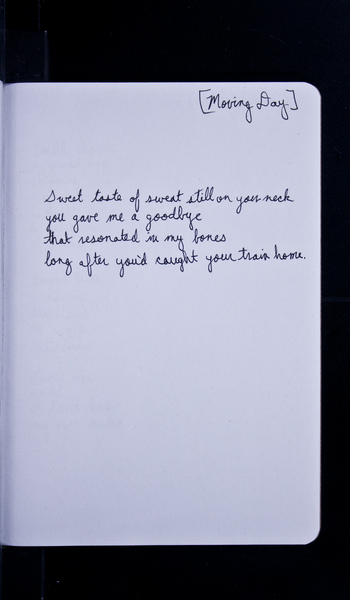 [Moving Day]
Sweet taste of sweat still on your neck
you gave me a goodbye
that resonated in my bones
long after you'd caught your train home.